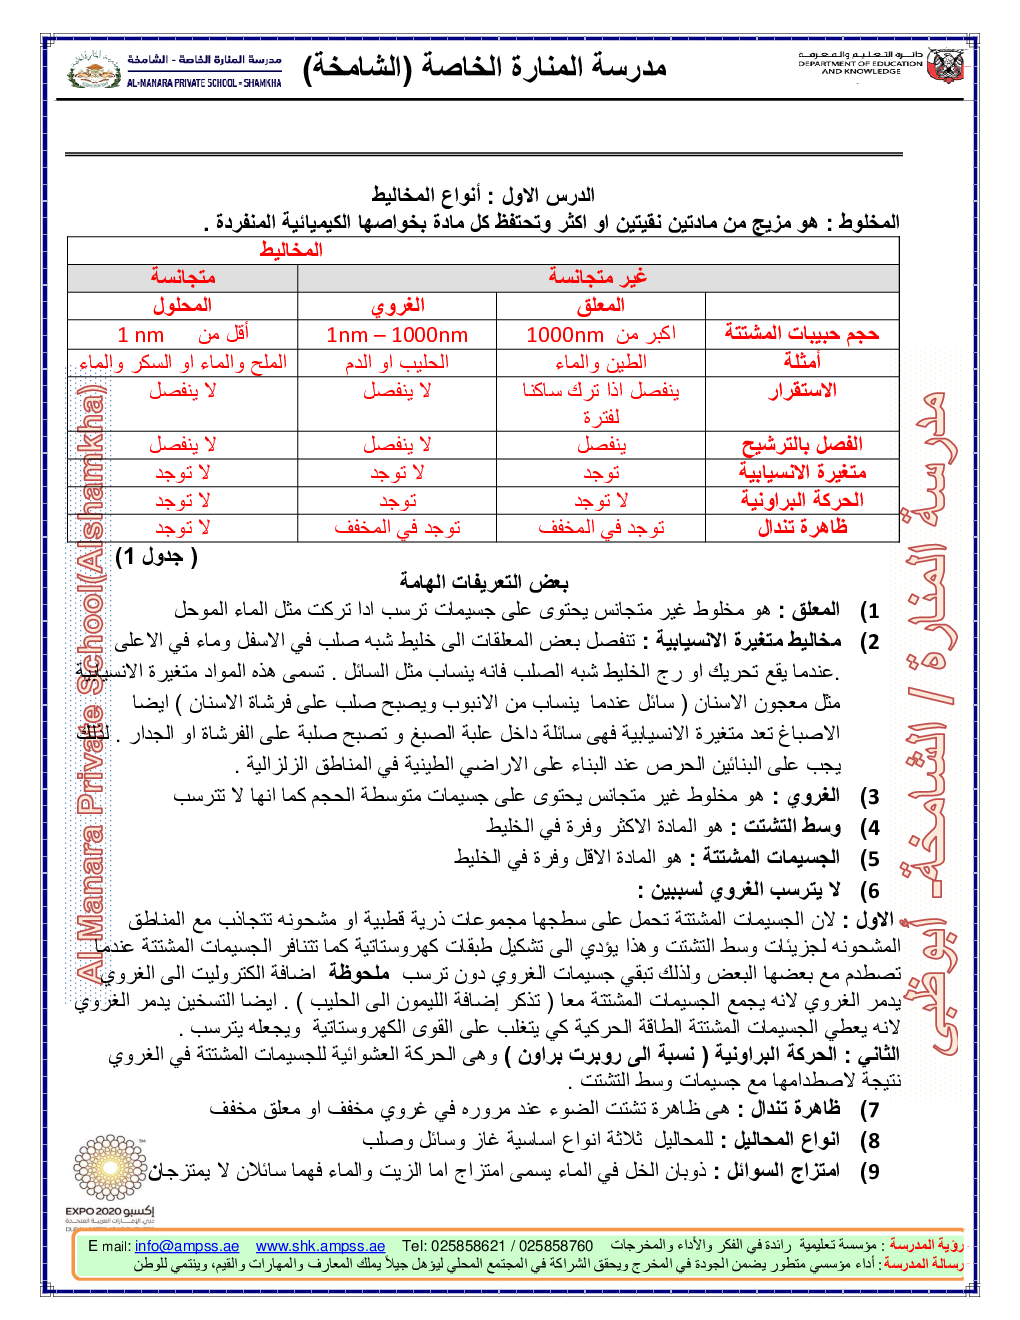 مدرسة المنارة الخاصة - الشامخة
AL-MANARA PRIVATE SCHOOL - SHAMKHA
مدرسة المنارة الخاصة (الشامخة)
دائــرة الـتـعـلـيـم والـمـعـرفـة
DEPARTMENT OF EDUCATION
AND KNOWLEDGE
الدرس الاول : أنواع المخاليط
المخلوط : هو مزيج من مادتين نقيتين او اكثر وتحتفظ كل مادة بخواصها الكيميائية المنفردة .
المخاليط
غير متجانسة متجانسة
المعلق الغروي المحلول
حجم حبيبات المشتتة اكبر من 1000nm 1nm – 1000nm أقل من 1 nm
أمثلة الطين والماء الحليب او الدم الملح والماء او السكر والماء
الاستقرار ينفصل اذا ترك ساكنا لا ينفصل لا ينفصل
لفترة
الفصل بالترشيح ينفصل لا ينفصل لا ينفصل
متغيرة الانسيابية توجد لا توجد لا توجد
الحركة البراونية لا توجد توجد لا توجد
ظاهرة تندال توجد في المخفف توجد في المخفف لا توجد
( جدول 1)
بعض التعريفات الهامة
1) المعلق : هو مخلوط غير متجانس يحتوى على جسيمات ترسب اذا تركت مثل الماء الموحل
2) مخاليط متغيرة الانسيابية : تنفصل بعض المعلقات الى خليط شبه صلب في الاسفل وماء في الاعلى
.عندما يقع تحريك او رج الخليط شبه الصلب فانه ينساب مثل السائل . تسمى هذه المواد متغيرة الانسيابية
مثل معجون الاسنان ( سائل عندما ينساب من الانبوب ويصبح صلب على فرشاة الاسنان ) ايضا
الاصباغ تعد متغيرة الانسيابية فهى سائلة داخل علبة الصبغ و تصبح صلبة على الفرشاة او الجدار . لذلك
يجب على البنائين الحرص عند البناء على الاراضي الطينية في المناطق الزلزالية .
3) الغروي : هو مخلوط غير متجانس يحتوى على جسيمات متوسطة الحجم كما انها لا تترسب
4) وسط التشتت : هو المادة الاكثر وفرة في الخليط
5) الجسيمات المشتتة : هو المادة الاقل وفرة في الخليط
6) لا يترسب الغروي لسببين :
الاول : لان الجسيمات المشتتة تحمل على سطجها مجموعات ذرية قطبية او مشحونه تتجاذب مع المناطق
المشحونه لجزيئات وسط التشتت وهذا يؤدي الى تشكيل طبقات كهروستاتية كما تتنافر الجسيمات المشتتة عندما
تصطدم مع بعضها البعض ولذلك تبقي جسيمات الغروي دون ترسب ملحوظة اضافة الكتروليت الى الغروي
يدمر الغروي لانه يجمع الجسيمات المشتتة معا ( تذكر إضافة الليمون الى الحليب ) . ايضا التسخين يدمر الغروي
لانه يعطي الجسيمات المشتتة الطاقة الحركية كي يتغلب على القوى الكهروستاتية ويجعله يترسب .
الثاني : الحركة البراونية ( نسبة الى روبرت براون ) وهى الحركة العشوائية للجسيمات المشتتة في الغروي
نتيجة لاصطدامها مع جسيمات وسط التشتت .
7) ظاهرة تندال : هى ظاهرة تشتت الضوء عند مروره في غروي مخفف او معلق مخفف
8) انواع المحاليل : للمحاليل ثلاثة انواع اساسية غاز وسائل وصلب
9) امتزاج السوائل : ذوبان الخل في الماء يسمى امتزاج اما الزيت والماء فهما سائلان لا يمتزجان
Al Manara Private School(Alshamkha)
مدرسة المنارة / الشامخة- أبوظبى
إكسبو EXPO 2020
دبي، الإمـــارات العربيـة المتحـدة
رؤية المدرسة : مؤسسة تعليمية رائدة في الفكر والأداء والمخرجات Tel: 025858621 / 025858760 www.shk.ampss.ae E mail: info@ampss.ae
رسالة المدرسة : أداء مؤسسي متطور يضمن الجودة في المخرج ويحقق الشراكة في المجتمع المحلي ليؤهل جيلاً يملك المعارف والمهارات والقيم، وينتمي للوطن